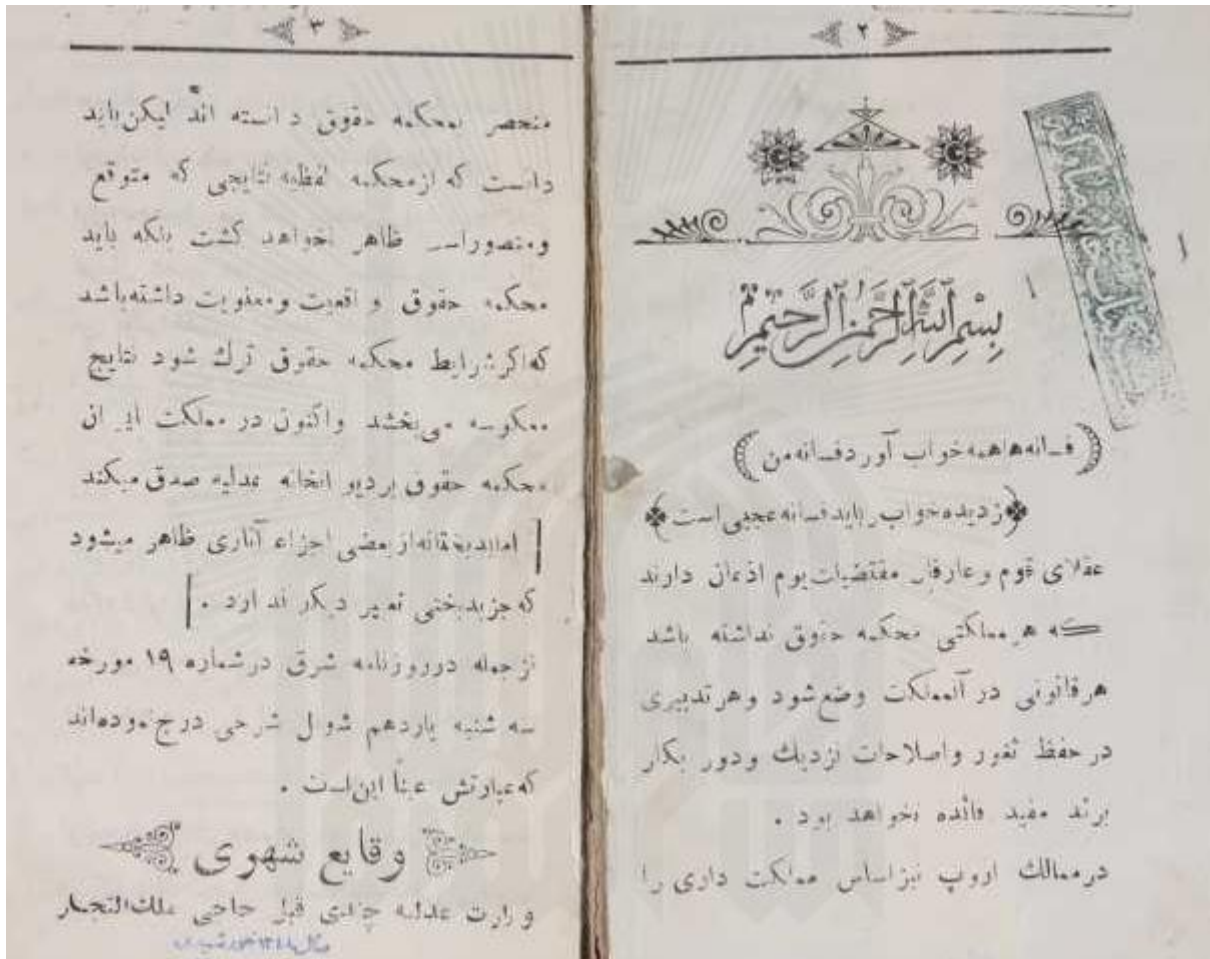 ۲
بِسْمِ ٱللَّهِ ٱلرَّحْمٰنِ ٱلرَّحِيمِ
(فسانه‌ها همه خواب آورد فسانه من)
زدیده خواب رباید فسانه عجیبی است
عقلای قوم و عارفان مقتضیات یوم اذعان دارند
که هر مملکتی محکمه حقوق نداشته باشد
هر قانونی در آنمملکت وضع شود و هر تدبیری
در حفظ ثغور و اصلاحات نزدیك و دور بکار
برند مفید فائده نخواهد بود .
در ممالك اروپ نیز اساس مملکت داری را
۳
منحصر بمحکمه حقوق دانسته اند لیکن باید
دانست که از محکمه لفظیه نتایجی که متوقع
و متصور است ظاهر نخواهد گشت بلکه باید
محکمه حقوق واقعیت و معنویت داشته باشد
که اگر شرایط محکمه حقوق ترك شود نتایج
معکوسه می بخشد و اکنون در مملکت ایران
محکمه حقوق بر دیوانخانه عدلیه صدق میکند
اما بدبختانه از بعضی اجزاء آثاری ظاهر میشود
که جز بدبختی تعبیر دیگر ندارد .
از جمله در روزنامه شرق در شماره ۱۹ مورخه
سه شنبه یازدهم شوال شرحی درج نموده‌اند
که عبارتش عیناً این است .
وقایع شهری
وزارت عدلیه چندی قبل حاجی ملك التجار